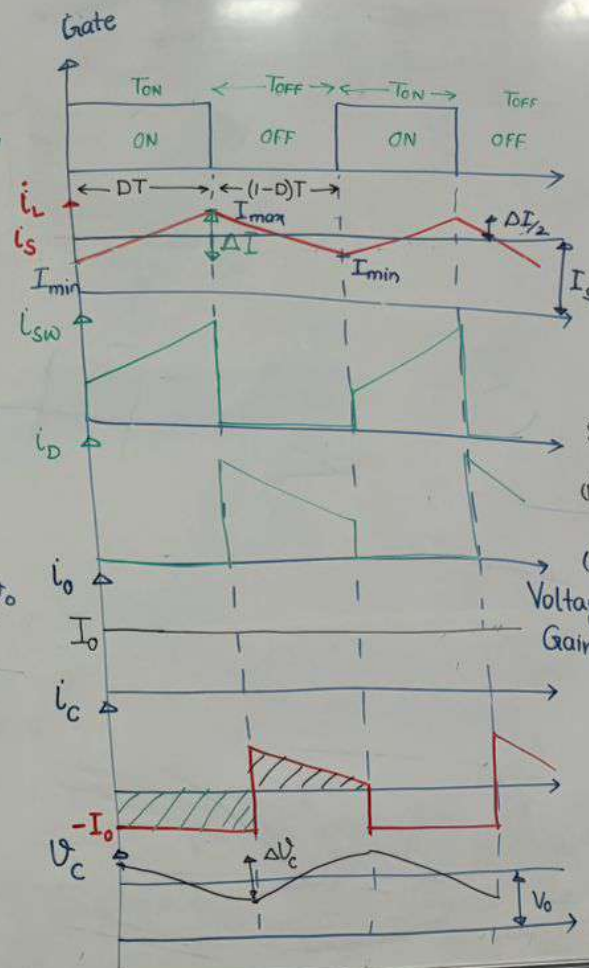 Gate
TON TOFF TON TOFF
ON OFF ON OFF
DT (1-D)T
iL
Imax ΔI/2
iS ΔI
Imin Imin Is
iSW
iD
io
Io
Gain
iC
-Io
ΔVc
Vc
Vo